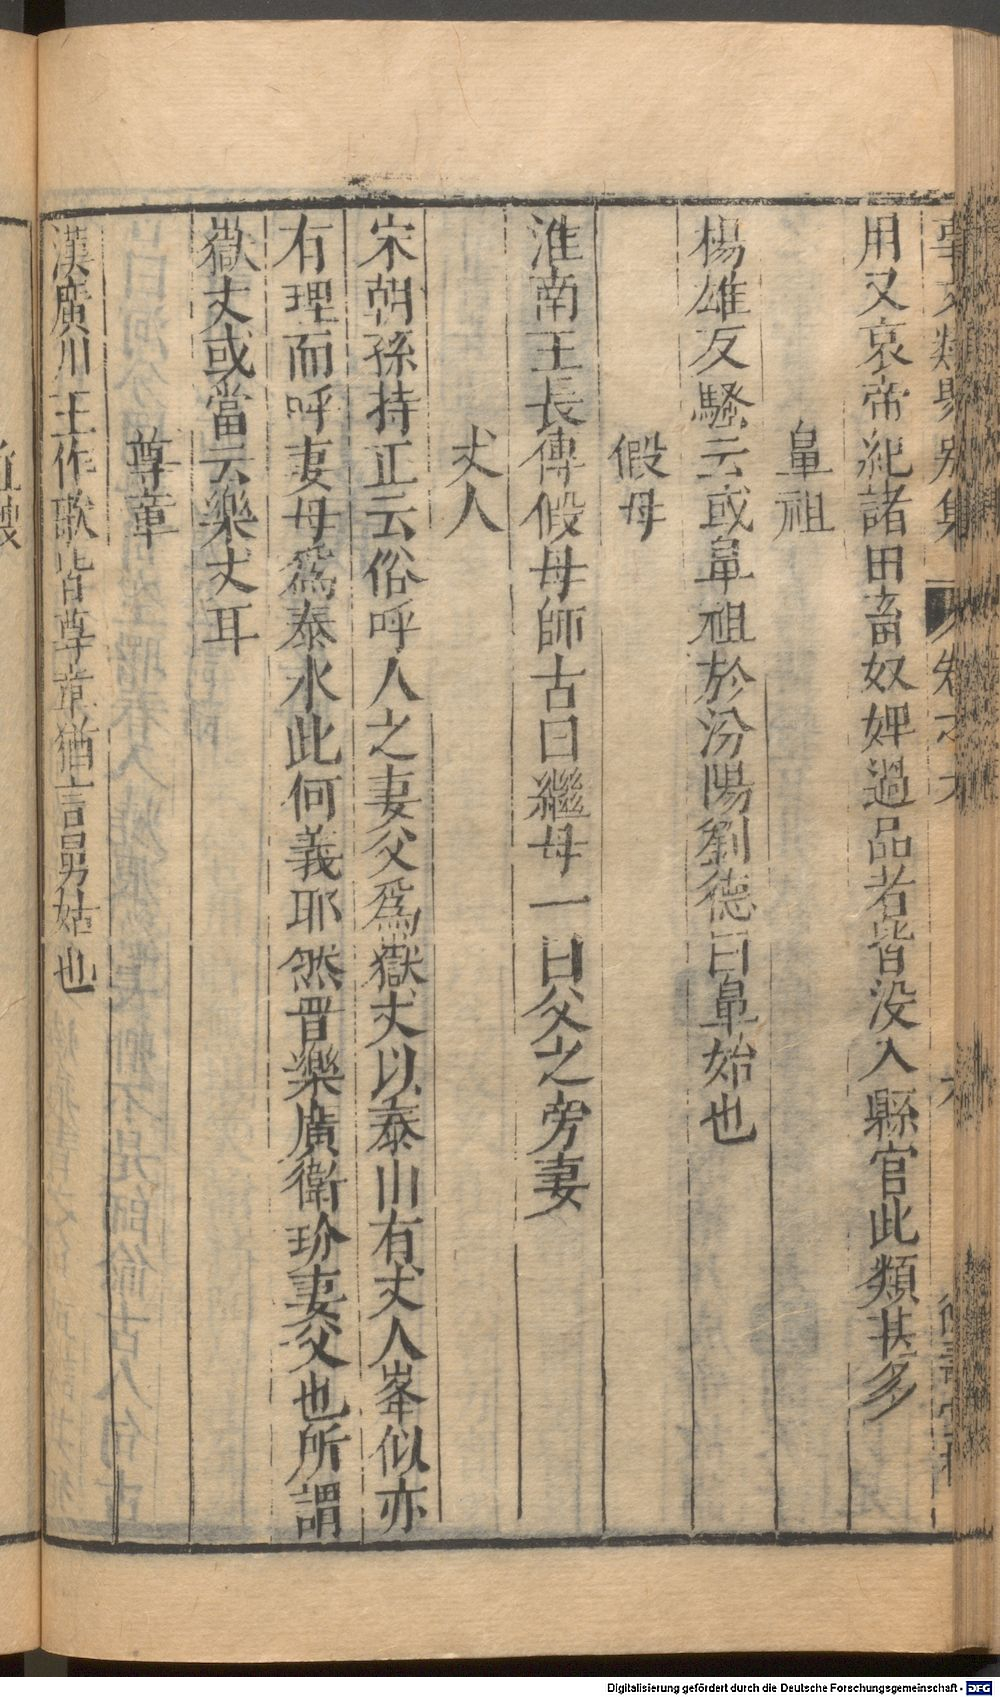 用又哀帝紀諸田畜奴婢過品者皆没入縣官此類甚多
鼻祖
楊雄反騷云或鼻祖於汾陽劉德曰鼻始也
假母
淮南王長傳假母師古曰繼母一曰父之旁妻
丈人
宋朝孫持正云俗呼人之妻父爲嶽丈以泰山有丈人峯似亦
有理而呼妻母爲泰水此何義耶然晋樂廣衛玠妻父也所謂
嶽丈或當云樂丈耳
尊章
漢廣川王作歌背尊章猶言舅姑也
Digitalisierung gefördert durch die Deutsche Forschungsgemeinschaft - DFG